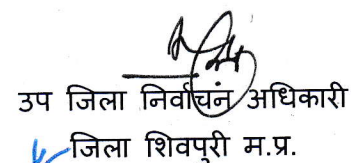 उप जिला निर्वाचन अधिकारी
जिला शिवपुरी म.प्र.